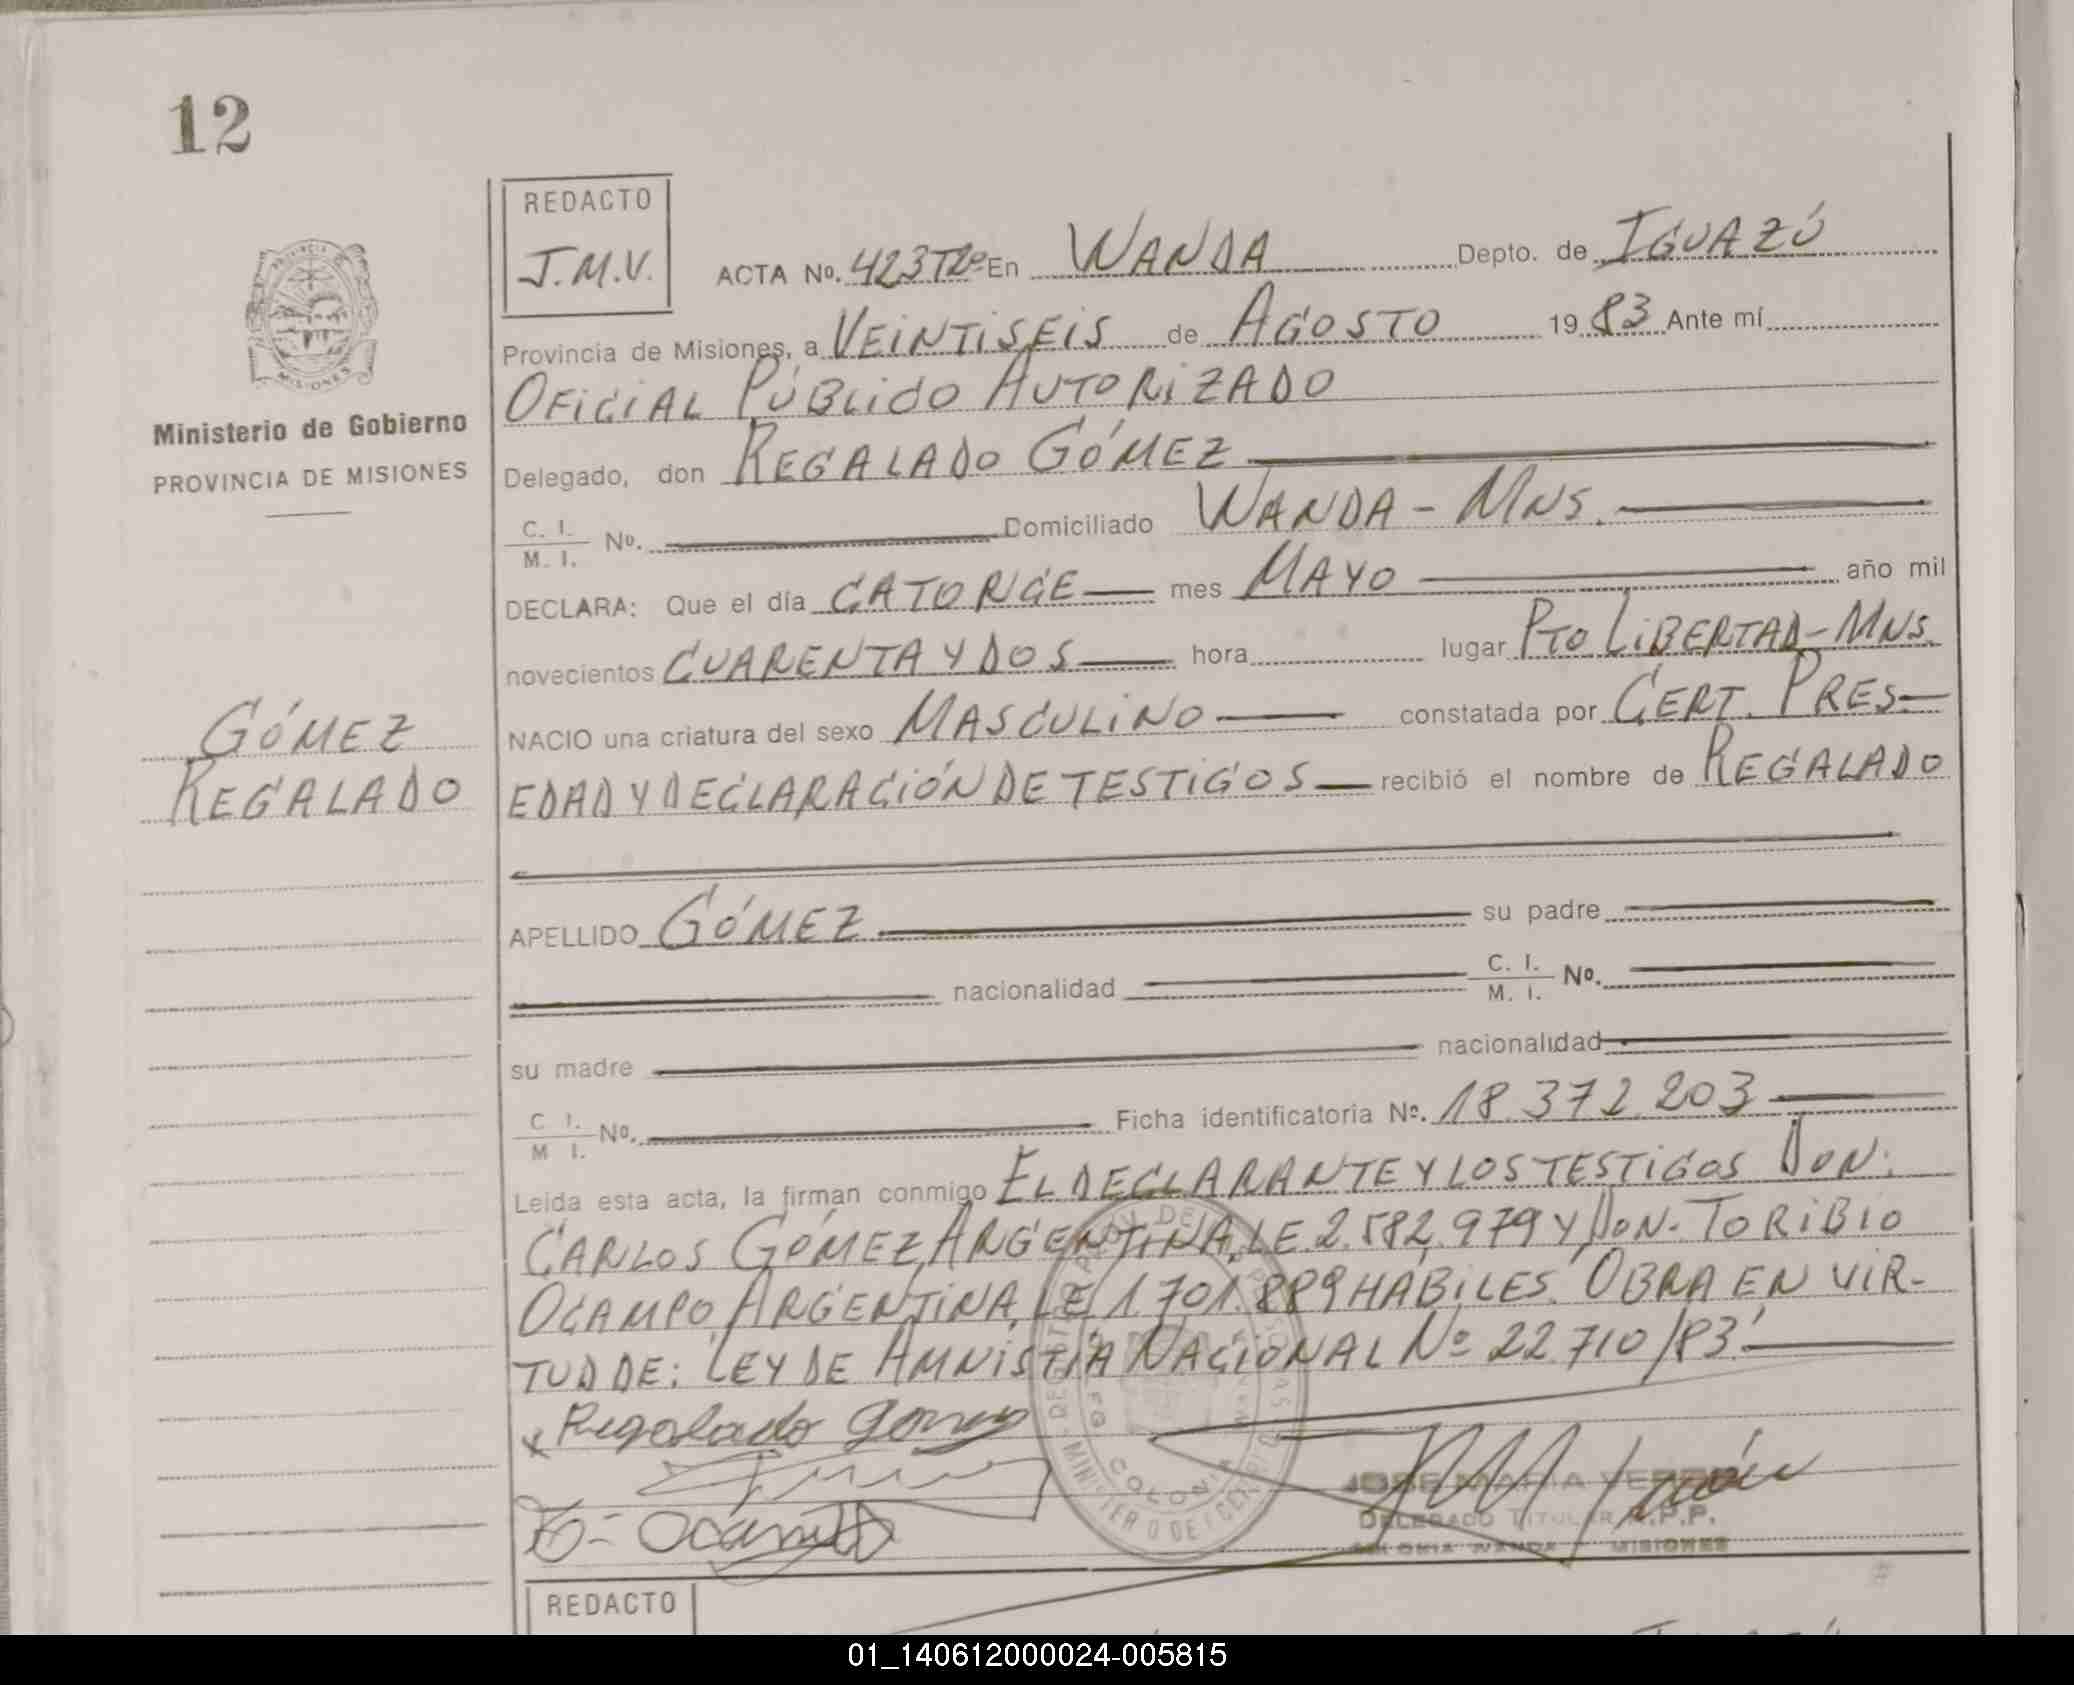 12
REDACTO
J.M.V.
ACTA No. 423Tº2º En WANDA Depto. de IGUAZÚ
Provincia de Misiones, a VEINTISEIS de AGOSTO 19 83 Ante mí
OFICIAL PÚBLICO AUTORIZADO
Ministerio de Gobierno
PROVINCIA DE MISIONES
Delegado, don REGALADO GÓMEZ
C. I.
M. I. No. Domiciliado WANDA - MNS.
DECLARA: Que el día CATORCE mes MAYO año mil
novecientos CUARENTA Y DOS hora lugar PTO LIBERTAD - MNS.
NACIO una criatura del sexo MASCULINO constatada por CERT. PRES-
GÓMEZ
REGALADO
EDAD Y DECLARACIÓN DE TESTIGOS recibió el nombre de REGALADO
APELLIDO GÓMEZ su padre
nacionalidad C. I. M. I. No.
su madre nacionalidad
C. I. M. I. No. Ficha identificatoria No. 18.372.203
Leida esta acta, la firman conmigo EL DECLARANTE Y LOS TESTIGOS DON:
CARLOS GÓMEZ, ARGENTINA, L.E. 2.582.979 Y DON. TORIBIO
OCAMPO, ARGENTINA, L.E. 1.701.889 HÁBILES. OBRA EN VIR-
TUD DE: LEY DE AMNISTÍA NACIONAL Nº 22.710/83.
x Regalado Gomez
JOSE MARIA
DELEGADO TITULAR R.P.P.
COLONIA WANDA - MISIONES
REDACTO
01_140612000024-005815